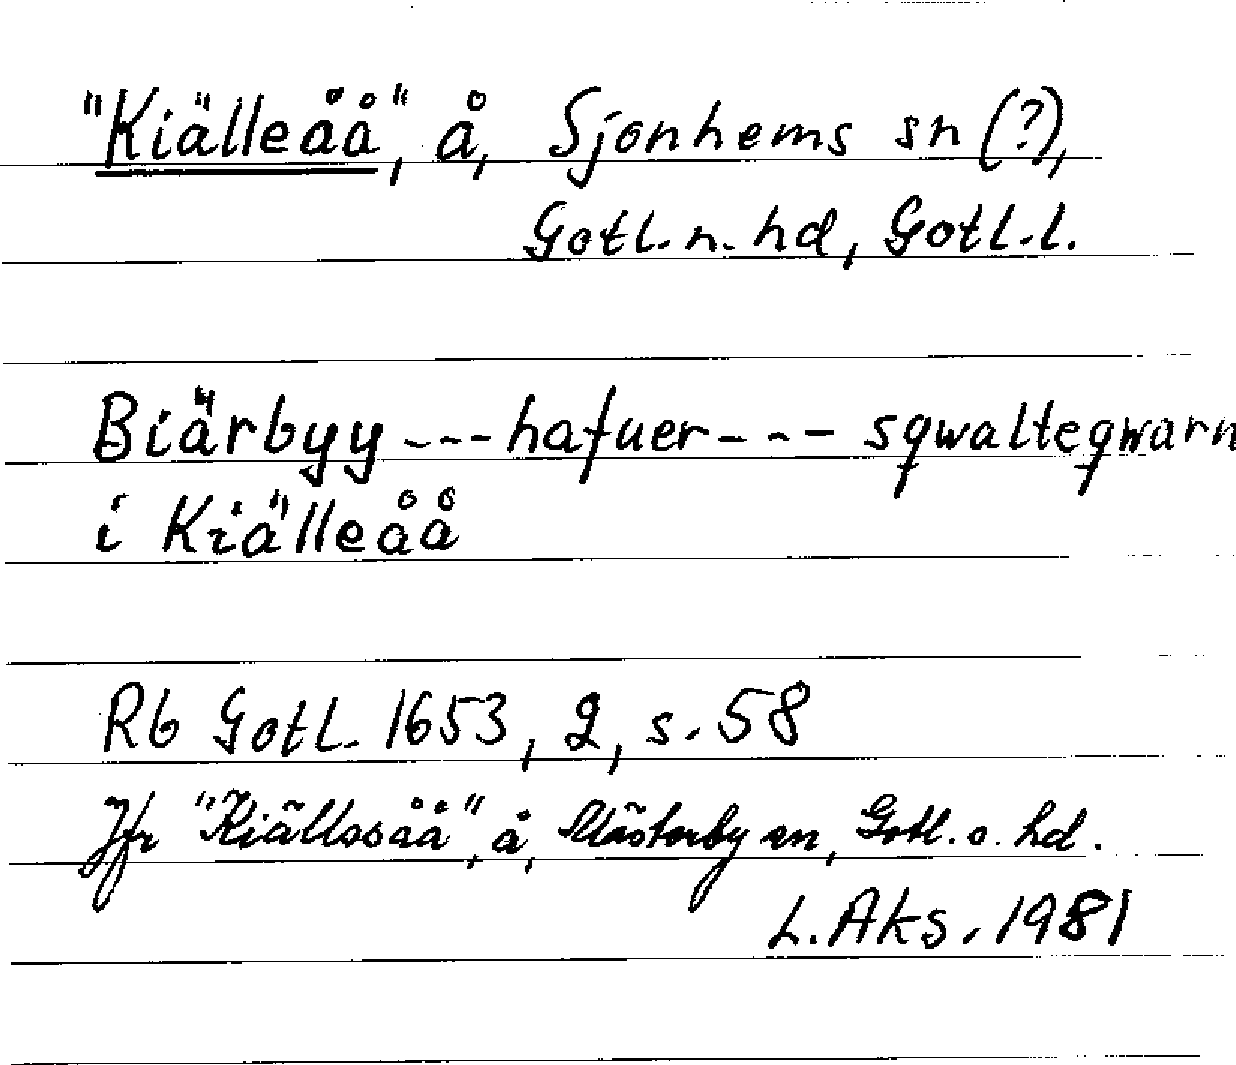 "Kiälleåå", å, Sjonhems sn (?),
Gotl. n. hd, Gotl. l.
Biärbyy --- hafuer --- sqwalteqwarn
i Kiälleåå
Rb Gotl. 1653, 2, s. 58
Jfr "Kiällosåå", å, Mästerby sn, Gotl. s. hd.
L. Aks. 1981